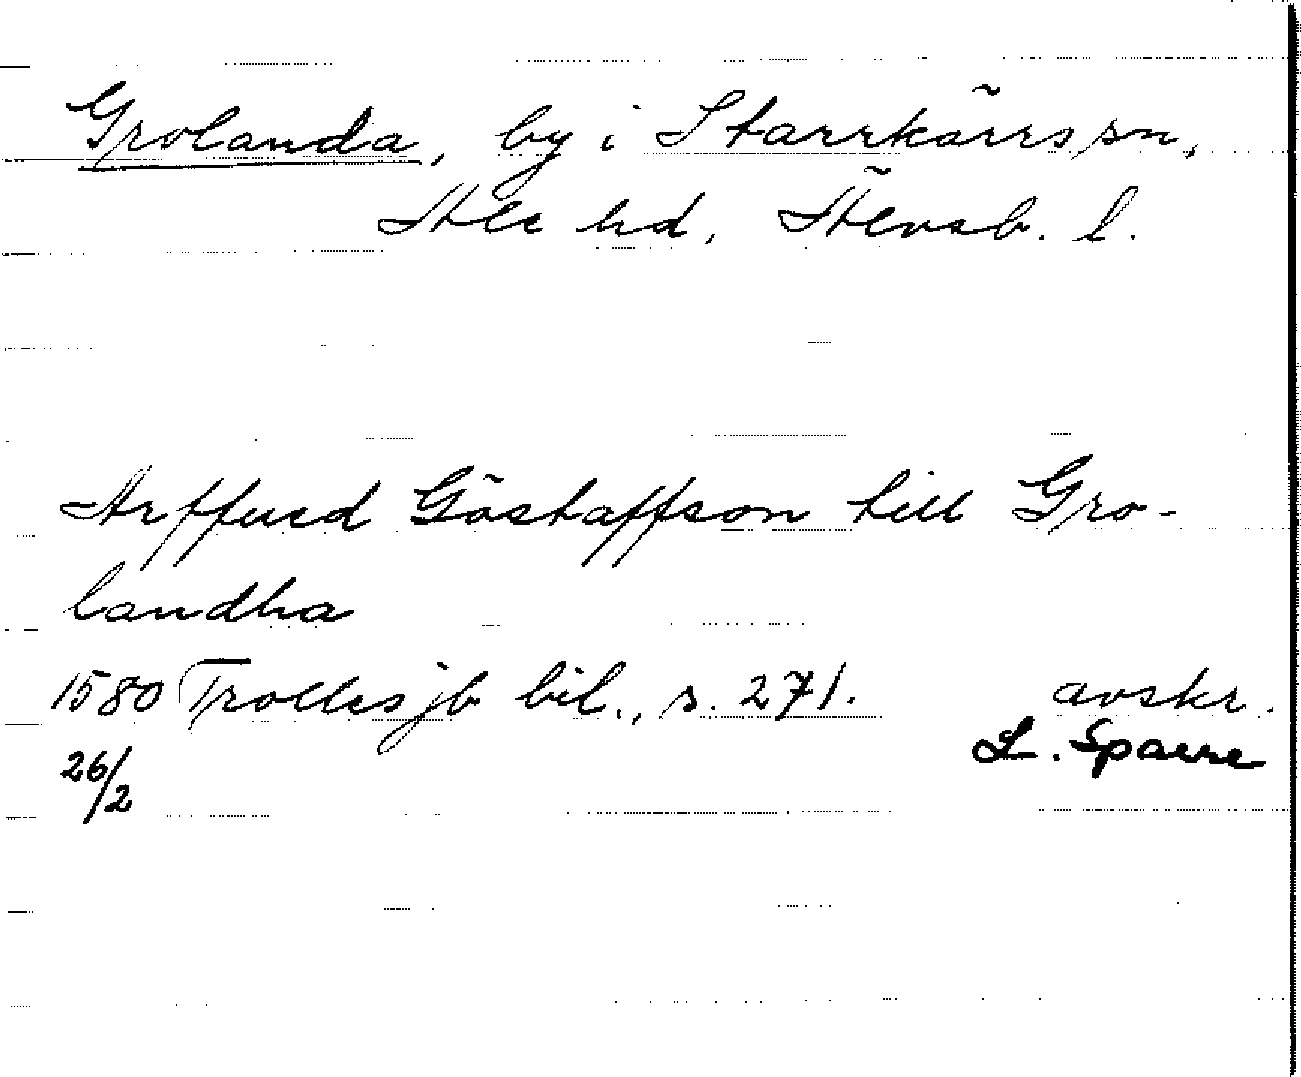 Grolanda, by i Starrkärrs sn,
Ale hd, Älvsb. l.
Arffued Göstaffson till Gro-
landha
1580 Trolles jb bil., s. 271. avskr.
26/2 L. Sparre